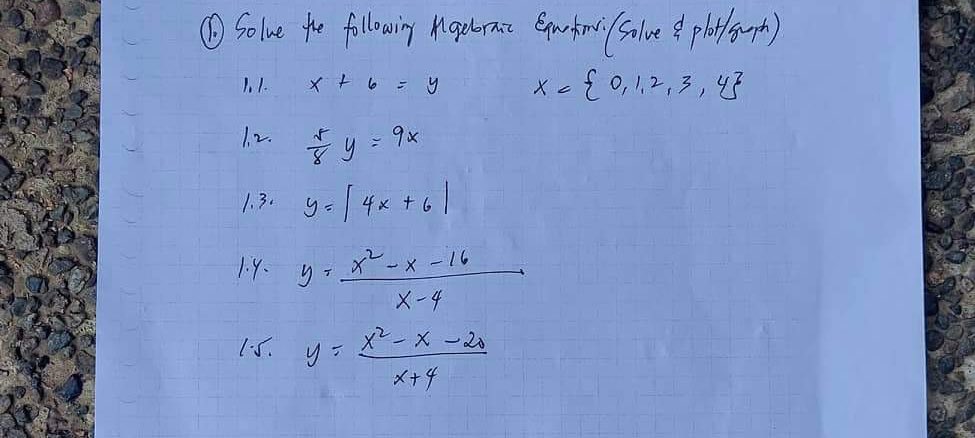 1. Solve the following Algebraic Equations: (Solve & plot/graph)
1.1. x + 6 = y x = { 0, 1, 2, 3, 4}
1.2. 5/8 y = 9x
1.3. y = | 4x + 6 |
1.4. y = x² - x - 16 / x - 4
1.5. y = x² - x - 20 / x + 4